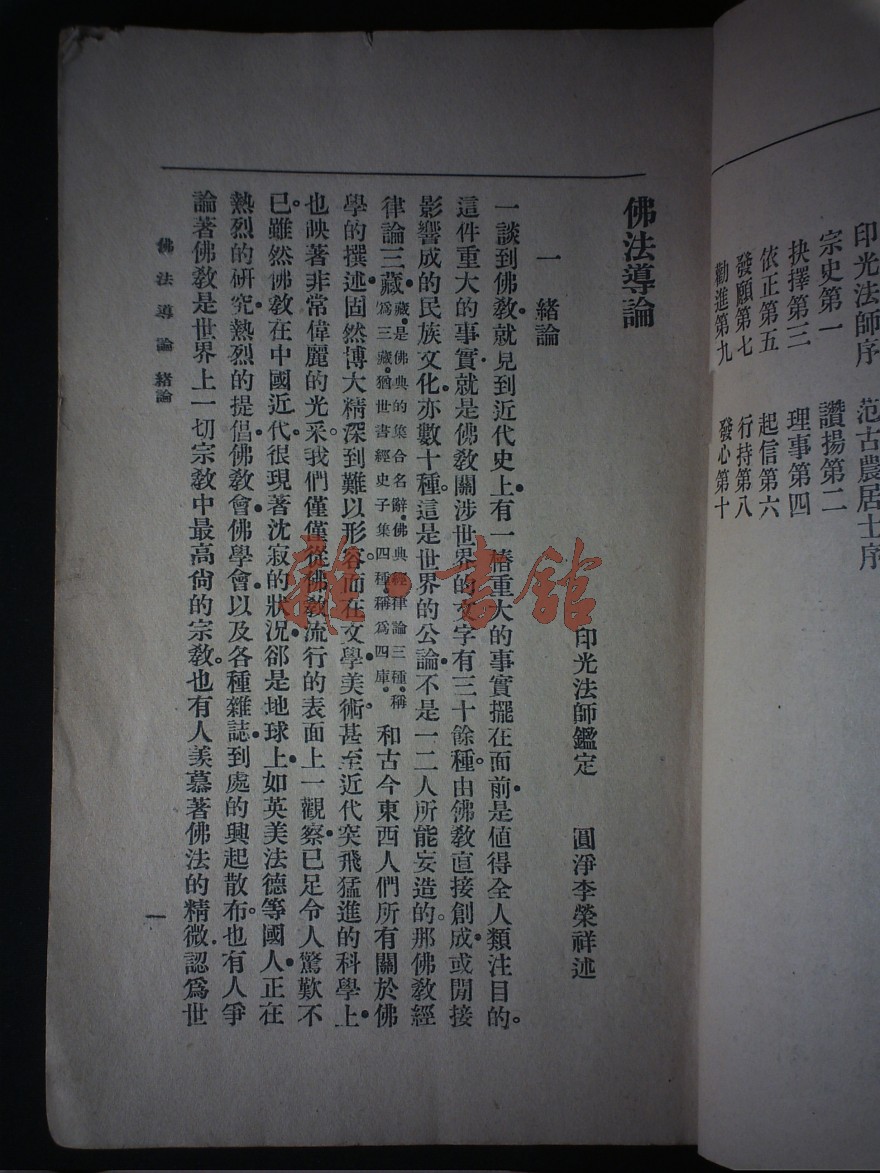 印光法師序　范古農居士序
宗史第一　讚揚第二
抉擇第三　理事第四
依正第五　起信第六
發願第七　行持第八
勸進第九　發心第十
佛法導論
印光法師鑑定　圓淨李榮祥述
一　緒論
一談到佛教。就見到近代史上。有一樁重大的事實擺在面前。是値得全人類注目的。
這件重大的事實。就是佛教關涉世界的文字有三十餘種。由佛教直接創成。或間接
影響成的民族文化。亦數十種。這是世界的公論。不是一二人所能妄造的。那佛教經
律論三藏。藏。是佛典的集合名辭。佛典經律論三種。稱爲三藏。猶世書經史子集四種。稱爲四庫。和古今東西人們所有關於佛
學的撰述。固然博大精深到難以形容。而在文學。美術。甚至近代突飛猛進的科學上。
也映著非常偉麗的光采。我們僅僅從佛教流行的表面上一觀察。已足令人驚歎不
已。雖然佛教在中國近代。很現著沈寂的狀況。卻是地球上。如英美法德等國人。正在
熱烈的研究。熱烈的提倡。佛教會。佛學會。以及各種雜誌。到處的興起散布。也有人爭
論著佛教是世界上一切宗教中最高尙的宗教。也有人羨慕著佛法的精微。認爲世
佛法導論　緒論
一
雜·書館